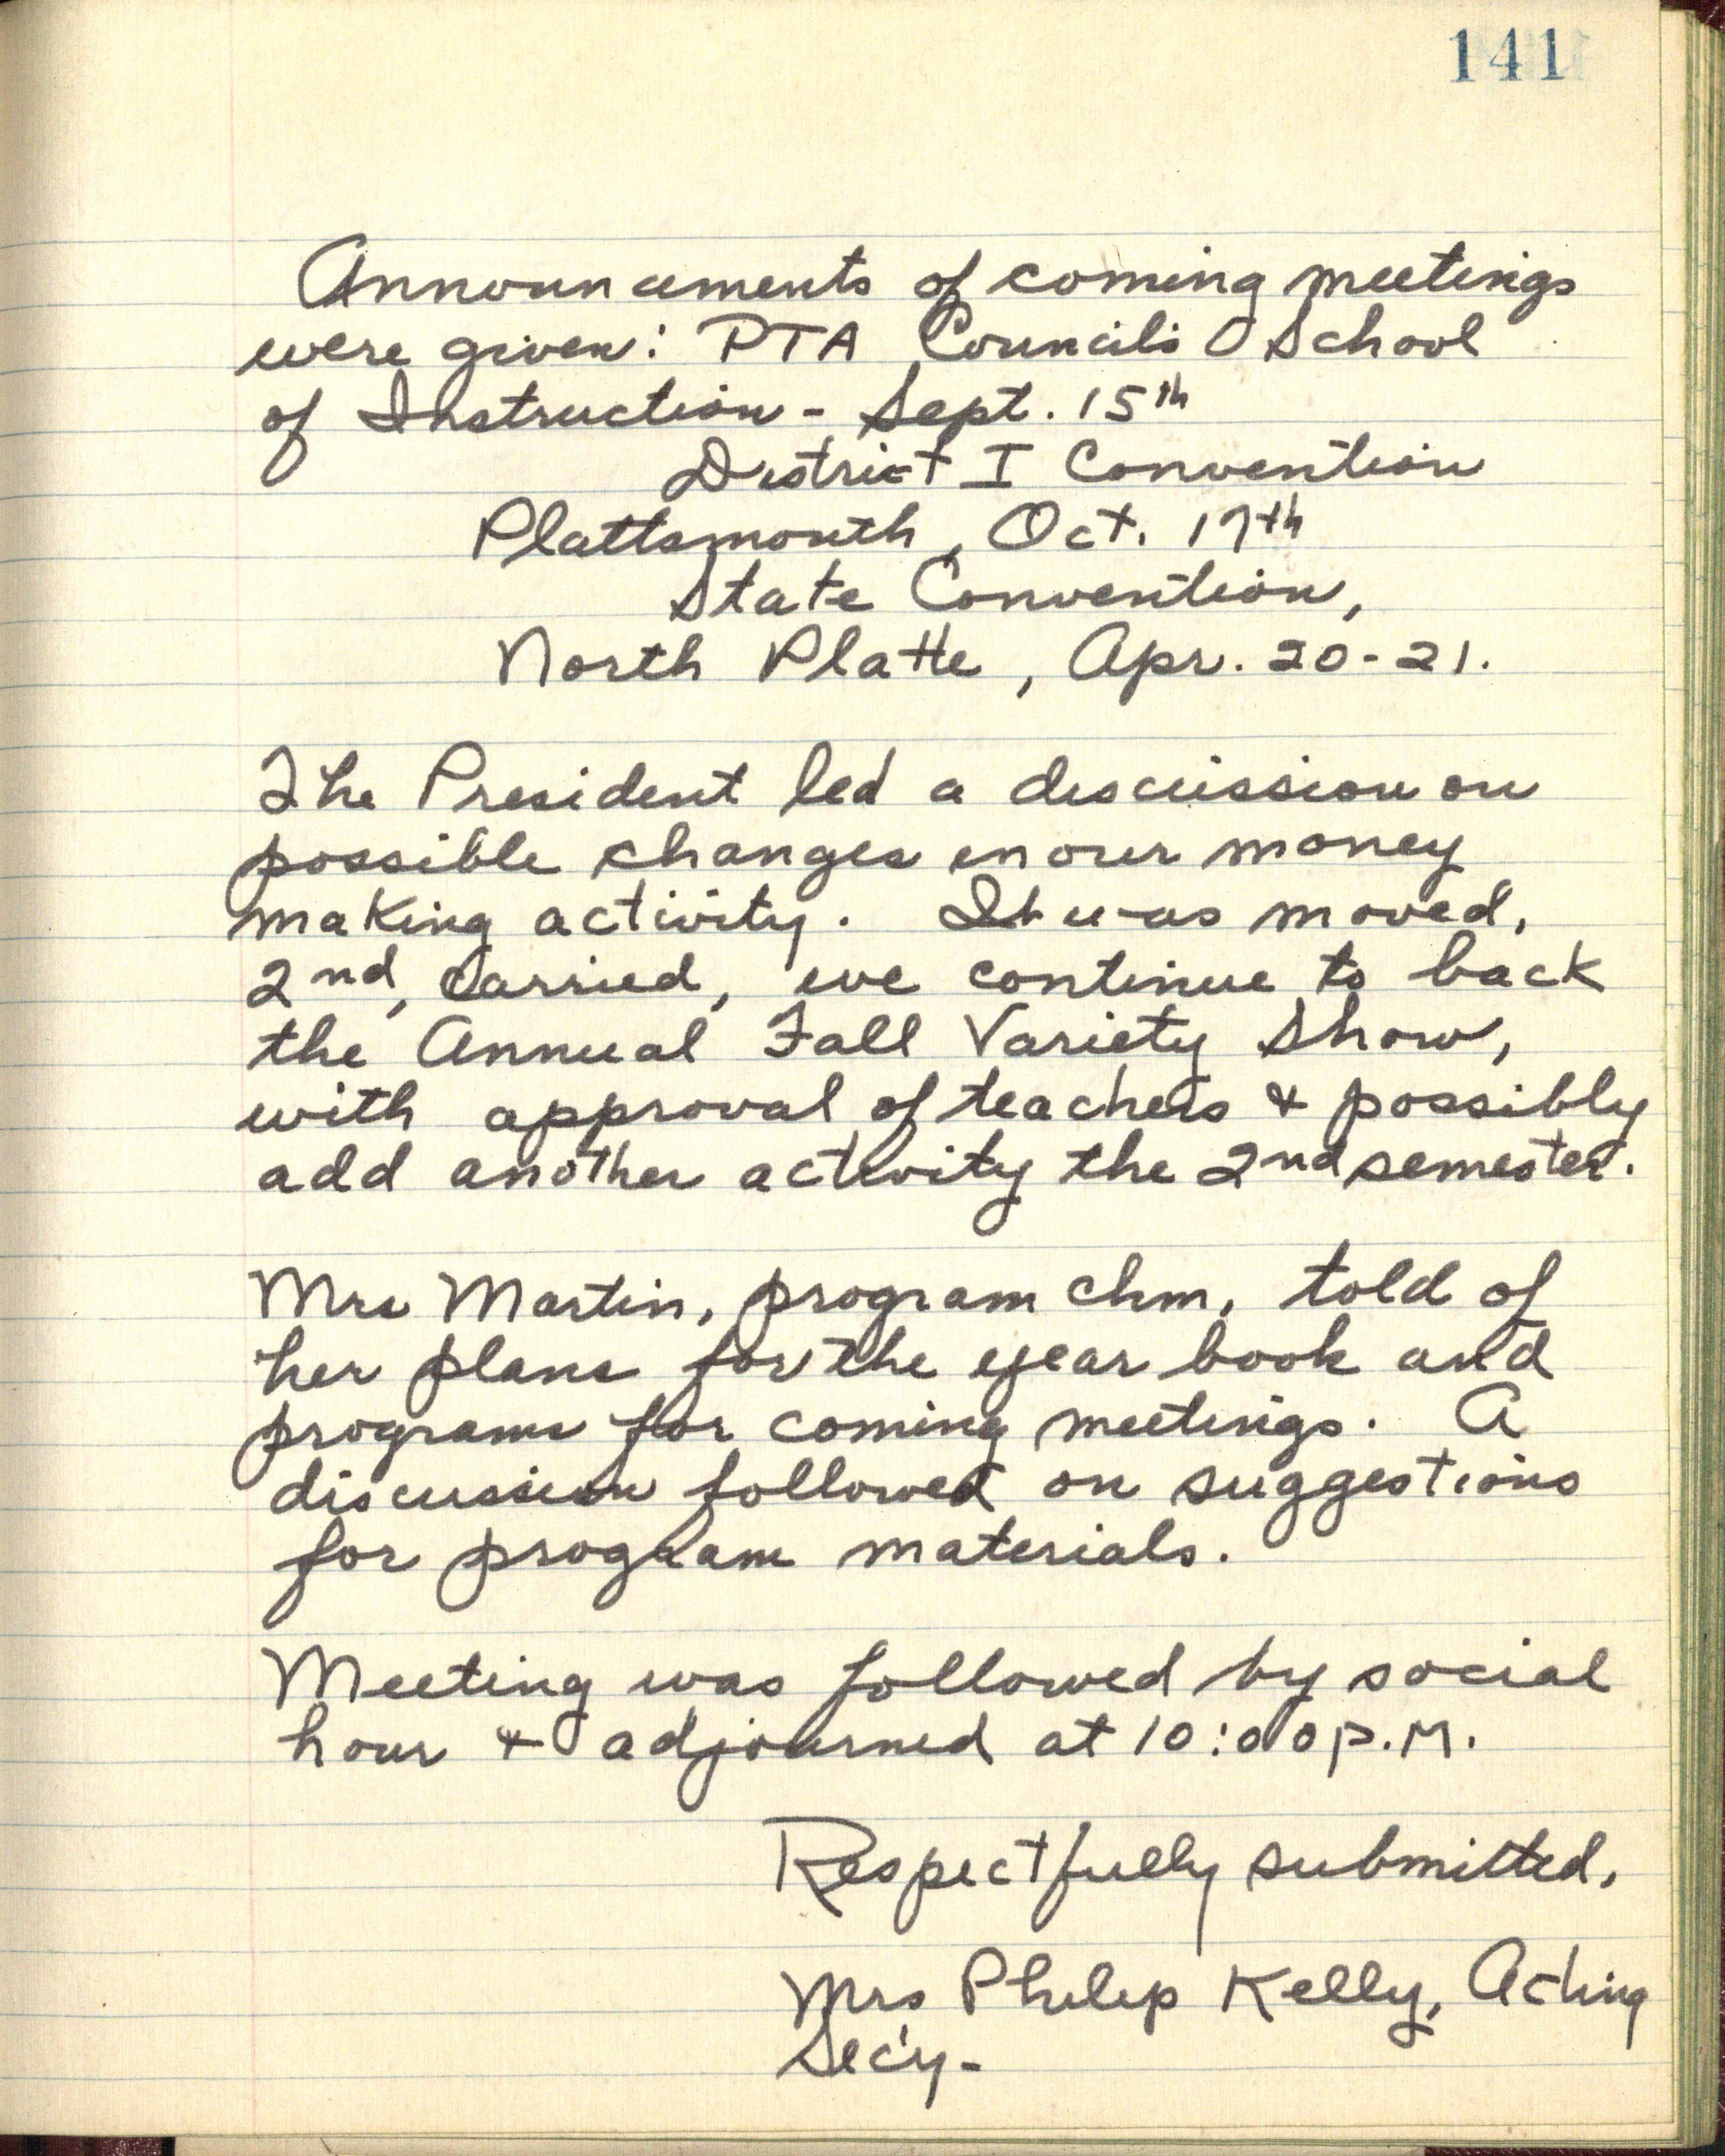 141
Announcements of coming meetings
were given: PTA Council's School
of Instruction - Sept. 15th
District I Convention
Plattsmouth, Oct. 17th
State Convention,
North Platte, Apr. 20-21.
The President led a discussion on
possible changes in our money
making activity. It was moved,
2nd, carried, we continue to back
the Annual Fall Variety Show,
with approval of teachers & possibly
add another activity the 2nd semester.
Mrs Martin, program chm, told of
her plans for the year book and
programs for coming meetings. A
discussion followed on suggestions
for program materials.
Meeting was followed by social
hour & adjourned at 10:00 p.M.
Respectfully submitted,
Mrs Philip Kelly, Acting
Sec'y-